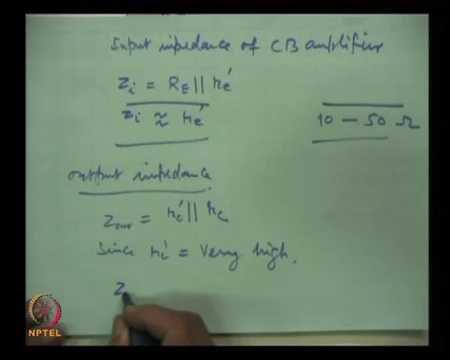 Input impedance of CB amplifier
Zi = RE || re'
Zi ≈ re'
10 – 50 Ω
output impedance
Zout = rc' || rc
Since rc' = Very high.
Z
NPTEL